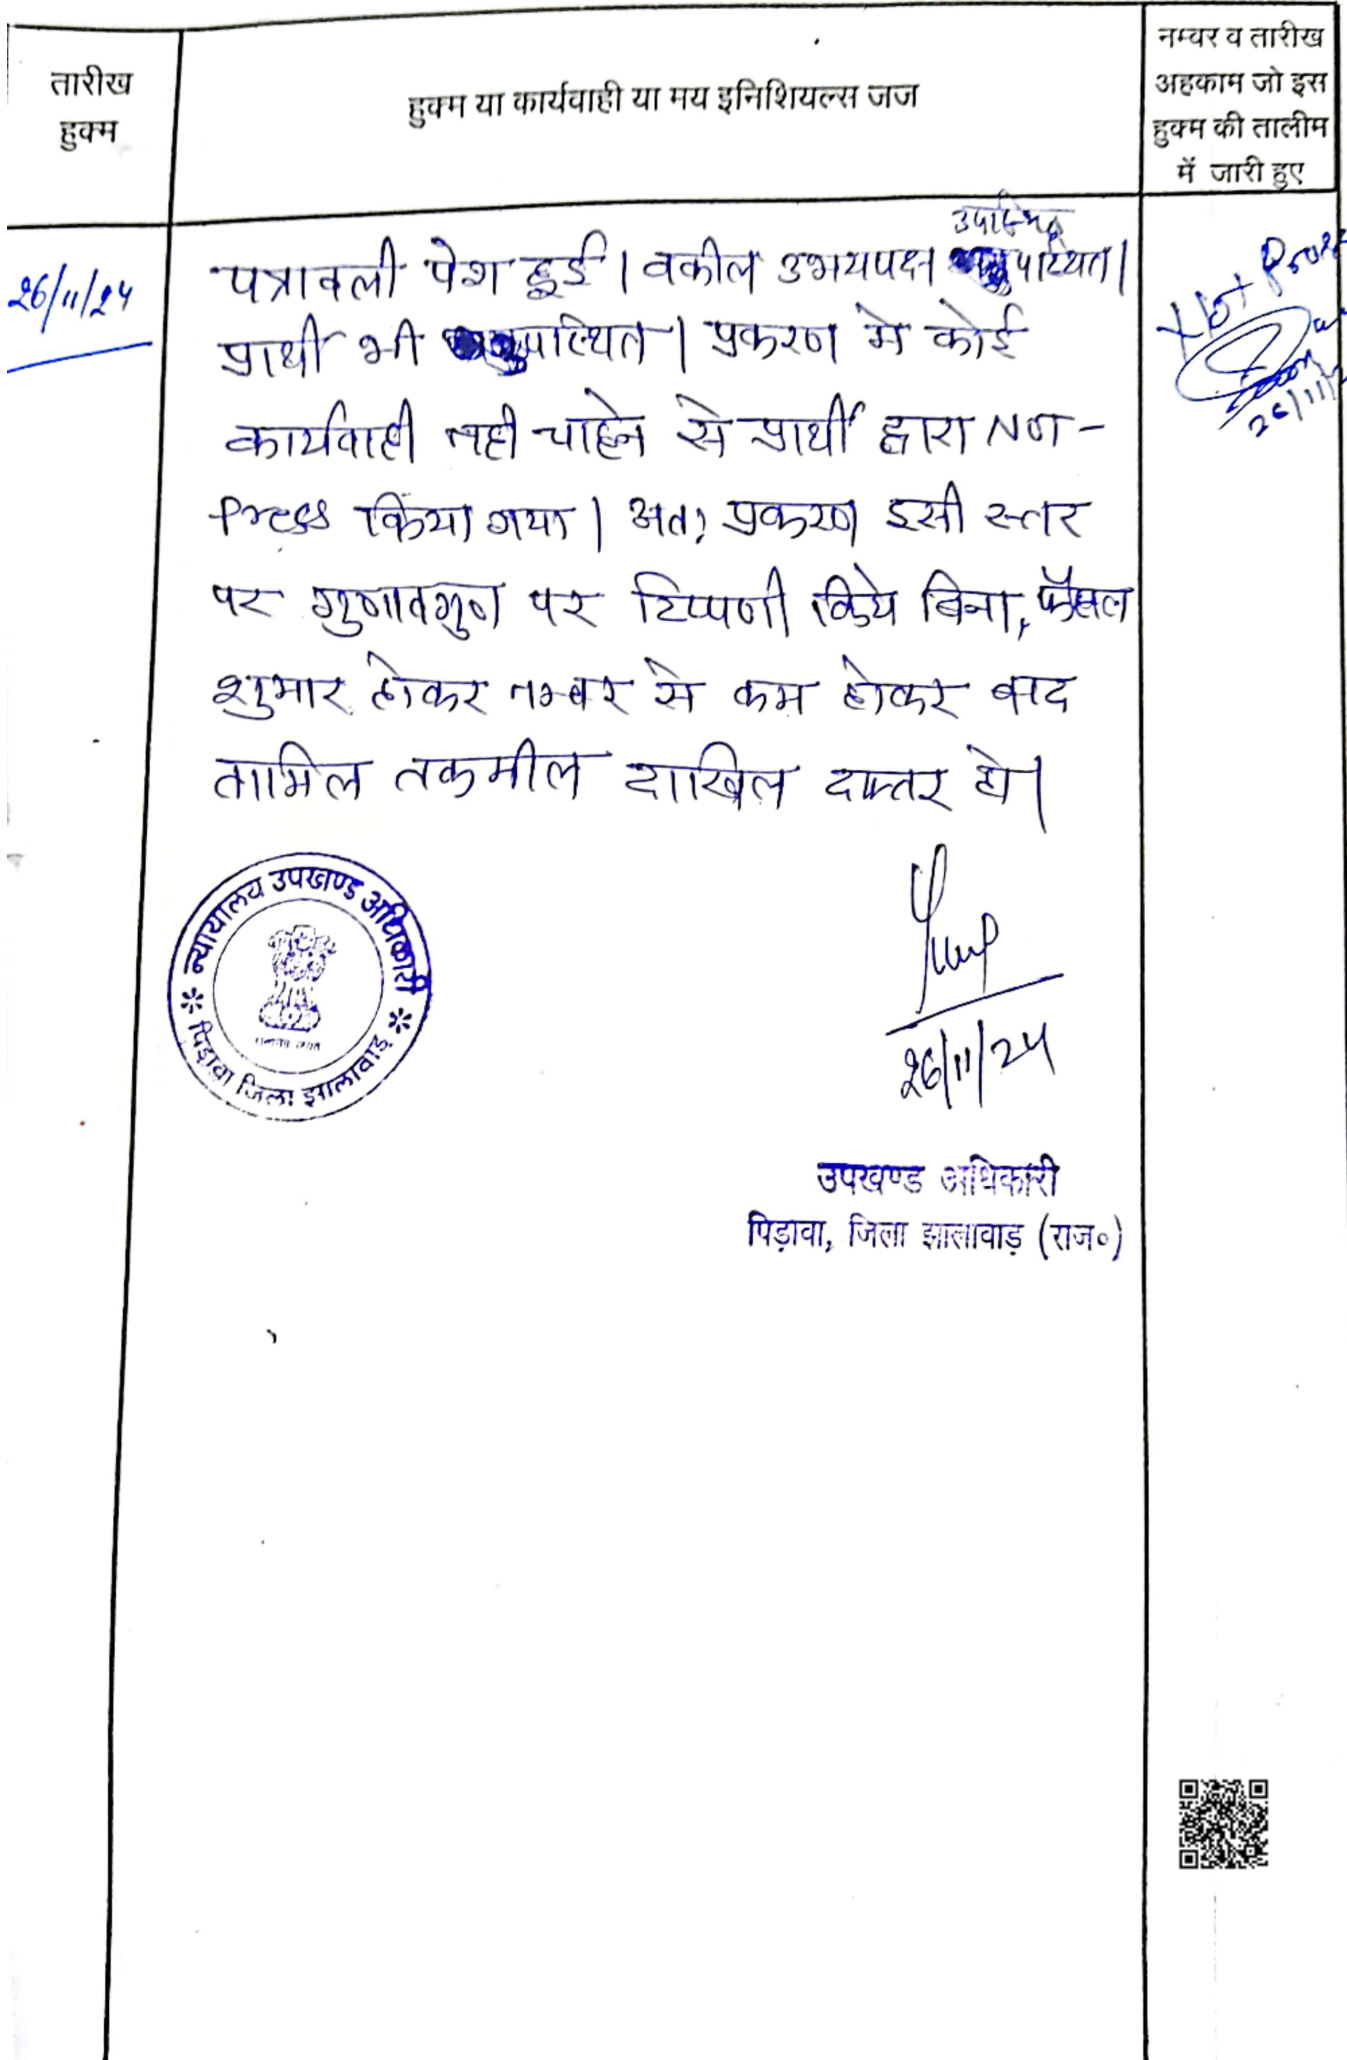 तारीख
हुक्म
हुक्म या कार्यवाही या मय इनिशियल्स जज
नम्बर व तारीख
अहकाम जो इस
हुक्म की तालीम
में जारी हुए
26/11/24
उपस्थित
पत्रावली पेश हुई। वकील उभयपक्ष
प्रार्थी भी उपास्थित। प्रकरण मे कोई
कार्यवाही नही चाहने से प्रार्थी द्वारा NOT-
Press किया गया। अतः प्रकरण इसी स्तर
पर गुणावगुण पर टिप्पणी किये बिना, फैसल
शुमार होकर नम्बर से कम होकर बाद
तामिल तकमील दाखिल दफ्तर हो।
Not
26/11/
न्यायालय उपखण्ड अधिकारी
पिड़ावा जिला झालावाड़
26/11/24
उपखण्ड अधिकारी
पिड़ावा, जिला झालावाड़ (राज०)